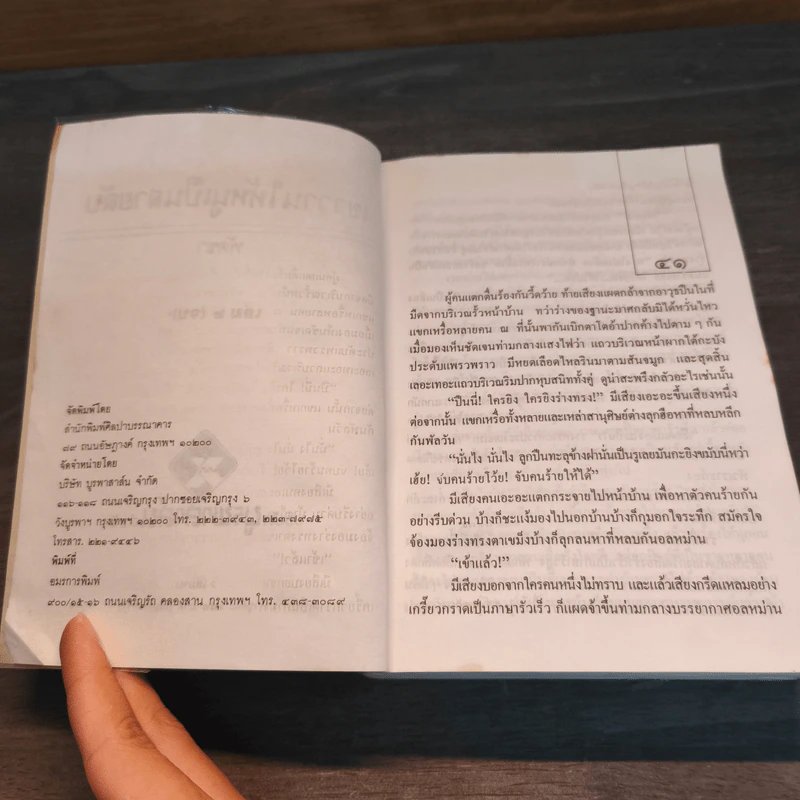 จัดพิมพ์โดย
สำนักพิมพ์ศิลปาบรรณาคาร
๘๙ ถนนอัษฎางค์ กรุงเทพฯ ๑๐๒๐๐
จัดจำหน่ายโดย
บริษัท บูรพาสาส์น จำกัด
๑๑๖-๑๑๘ ถนนเจริญกรุง ปากซอยเจริญกรุง ๖
วังบูรพาฯ กรุงเทพฯ ๑๐๒๐๐ โทร. ๒๒๒-๓๙๔๓, ๒๒๓-๘๙๗๕
โทรสาร. ๒๒๑-๙๔๔๖
พิมพ์ที่
อมรการพิมพ์
๙๐๐/๑๕-๑๖ ถนนเจริญรัถ คลองสาน กรุงเทพฯ โทร. ๔๓๘-๓๐๘๙
๔๑
ผู้คนแตกตื่นร้องกันวี้ดว้าย ท้ายเสียงแผดกล้าจากอาวุธปืนในที่
มืดจากบริเวณรั้วหน้าบ้าน ทว่าร่างของฐานะมาศกลับมิได้หวั่นไหว
แขกเหรื่อหลายคน ณ ที่นั้นพากันเบิกตาโตอ้าปากค้างไปตาม ๆ กัน
เมื่อมองเห็นชัดเจนท่ามกลางแสงไฟว่า แถวบริเวณหน้าผากใต้กะบัง
ประดับแพรวพราว มีหยดเลือดไหลรินมาตามสันจมูก และสุดสิ้น
เลอะเทอะแถวบริเวณริมปากหุบสนิททั้งคู่ ดูน่าสะพรึงกลัวอะไรเช่นนั้น
“ปืนนี่! ใครยิง ใครยิงร่างทรง!” มีเสียงเอะอะขึ้นเสียงหนึ่ง
ต่อจากนั้น แขกเหรื่อทั้งหลายและเหล่าสานุศิษย์ต่างลุกฮือหาที่หลบหลีก
กันพัลวัน
“นั่นไง นั่นไง ลูกปืนทะลุข้างฝานั่นเป็นรูเลยมันกะยิงขมับนี่หว่า
เฮ้ย! จับคนร้ายโว้ย! จับคนร้ายให้ได้”
มีเสียงคนเอะอะแตกกระจายไปหน้าบ้าน เพื่อหาตัวคนร้ายกัน
อย่างรีบด่วน บ้างก็ชะแง้มองไปนอกบ้านบ้างก็กุมอกใจระทึก สมัครใจ
จ้องมองร่างทรงตาเขม็งบ้างก็ลุกลนหาที่หลบกันอลหม่าน
“เข้าแล้ว!”
มีเสียงบอกจากใครคนหนึ่งไม่ทราบ และแล้วเสียงกรีดแหลมอย่าง
เกรี้ยวกราดเป็นภาษารัวเร็ว ก็แผดจ้าขึ้นท่ามกลางบรรยากาศอลหม่าน